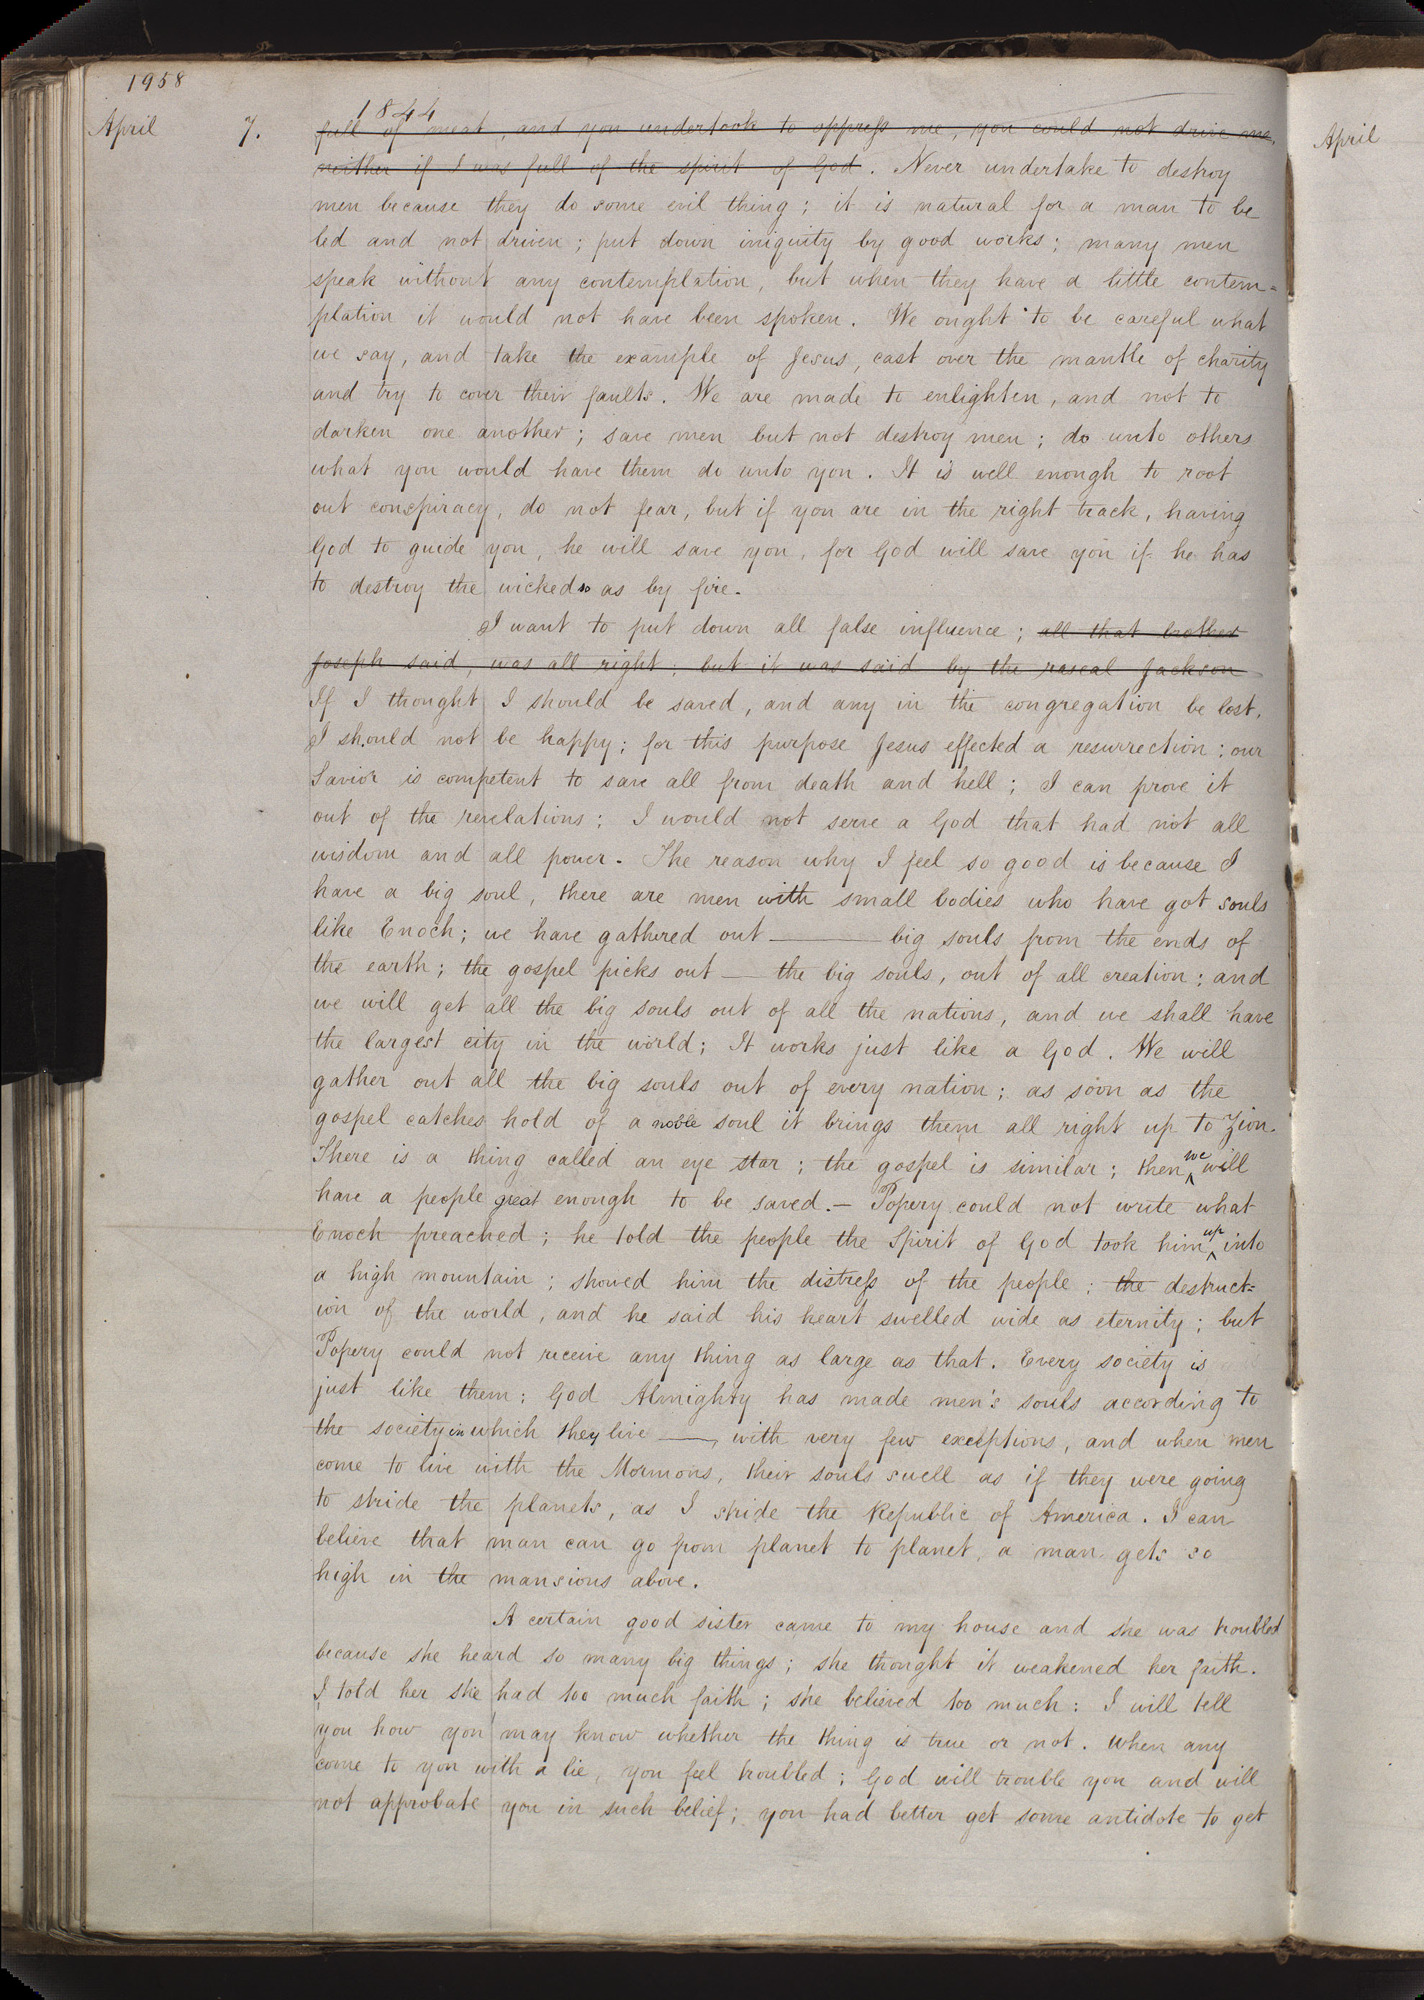 1958
1844
April 7. full of meat, and you undertook to oppress me, you could not drive me,
neither if I was full of the spirit of God. Never undertake to destroy
men because they do some evil thing; it is natural for a man to be
led and not driven; put down iniquity by good works; many men
speak without any contemplation, but when they have a little contem=
plation it would not have been spoken. We ought to be careful what
we say, and take the example of Jesus, cast over the mantle of charity
and try to cover their faults. We are made to enlighten, and not to
darken one another; save men but not destroy men; do unto others
what you would have them do unto you. It is well enough to root
out conspiracy, do not fear, but if you are in the right track, having
God to guide you, he will save you, for God will save you if he has
to destroy the wicked so as by fire.
I want to put down all false influence; all that brother
Joseph said, was all right; but it was said by the rascal Jackson
If I thought I should be saved, and any in the congregation be lost,
I should not be happy; for this purpose Jesus effected a resurrection; our
Savior is competent to save all from death and hell; I can prove it
out of the revelations; I would not serve a God that had not all
wisdom and all power. The reason why I feel so good is because I
have a big soul, there are men with small bodies who have got souls
like Enoch; we have gathered out —— big souls from the ends of
the earth; the gospel picks out — the big souls, out of all creation; and
we will get all the big souls out of all the nations, and we shall have
the largest city in the world; It works just like a God. We will
gather out all the big souls out of every nation; as soon as the
gospel catches hold of a noble soul it brings them all right up to Zion.
There is a thing called an eye star; the gospel is similar; then we will
have a people great enough to be saved.— Popery could not write what
Enoch preached; he told the people the Spirit of God took him up into
a high mountain; showed him the distress of the people; the destruct=
ion of the world, and he said his heart swelled wide as eternity; but
Popery could not receive any thing as large as that. Every society is
just like them; God Almighty has made men's souls according to
the society in which they live ——, with very few exceptions, and when men
come to live with the Mormons, their souls swell as if they were going
to stride the planets, as I stride the Republic of America. I can
believe that man can go from planet to planet, a man gets so
high in the mansions above.
A certain good sister came to my house and she was troubled
because she heard so many big things; she thought it weakened her faith.
I told her she had too much faith; she believed too much: I will tell
you how you may know whether the thing is true or not. When any
come to you with a lie, you feel troubled; God will trouble you and will
not approbate you in such belief; you had better get some antidote to get
April